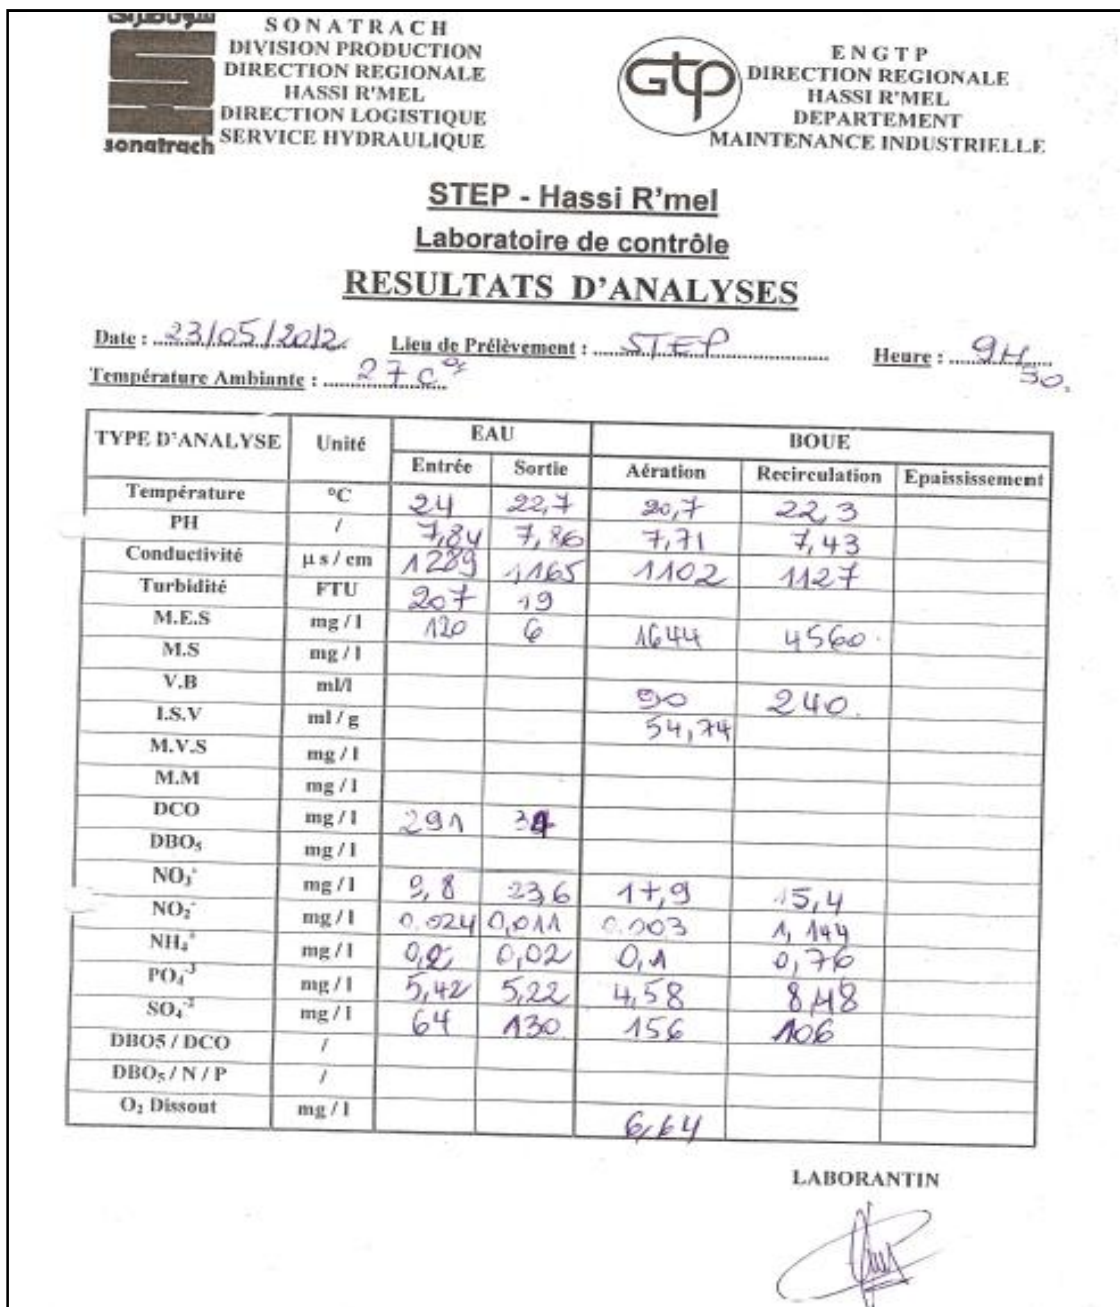 سوناطراك
sonatrach
SONATRACH
DIVISION PRODUCTION
DIRECTION REGIONALE
HASSI R'MEL
DIRECTION LOGISTIQUE
SERVICE HYDRAULIQUE
Gtp
ENGTP
DIRECTION REGIONALE
HASSI R'MEL
DEPARTEMENT
MAINTENANCE INDUSTRIELLE
STEP - Hassi R'mel
Laboratoire de contrôle
RESULTATS D'ANALYSES
Date : 23/05/2012 Lieu de Prélèvement : STEP Heure : 9H 30.
Température Ambiante : 27 C°
TYPE D'ANALYSE Unité EAU BOUE
Entrée Sortie Aération Recirculation Epaississement
Température °C 24 22,7 20,7 22,3
PH / 7,84 7,86 7,71 7,43
Conductivité µ s / cm 1289 1165 1102 1127
Turbidité FTU 207 19
M.E.S mg / l 120 6 1644 4560
M.S mg / l
V.B ml/l 90 240
I.S.V ml / g 54,74
M.V.S mg / l
M.M mg / l
DCO mg / l 291
DBO₅ mg / l
NO₃⁻ mg / l 9,8 23,6 17,9 15,4
NO₂⁻ mg / l 0.024 0,011 0.003 1,144
NH₄⁺ mg / l 0,02 0,1 0,76
PO₄⁻³ mg / l 5,42 5,22 4,58
SO₄⁻² mg / l 64 130 156 106
DBO5 / DCO /
DBO₅ / N / P /
O₂ Dissout mg / l 6,64
LABORANTIN